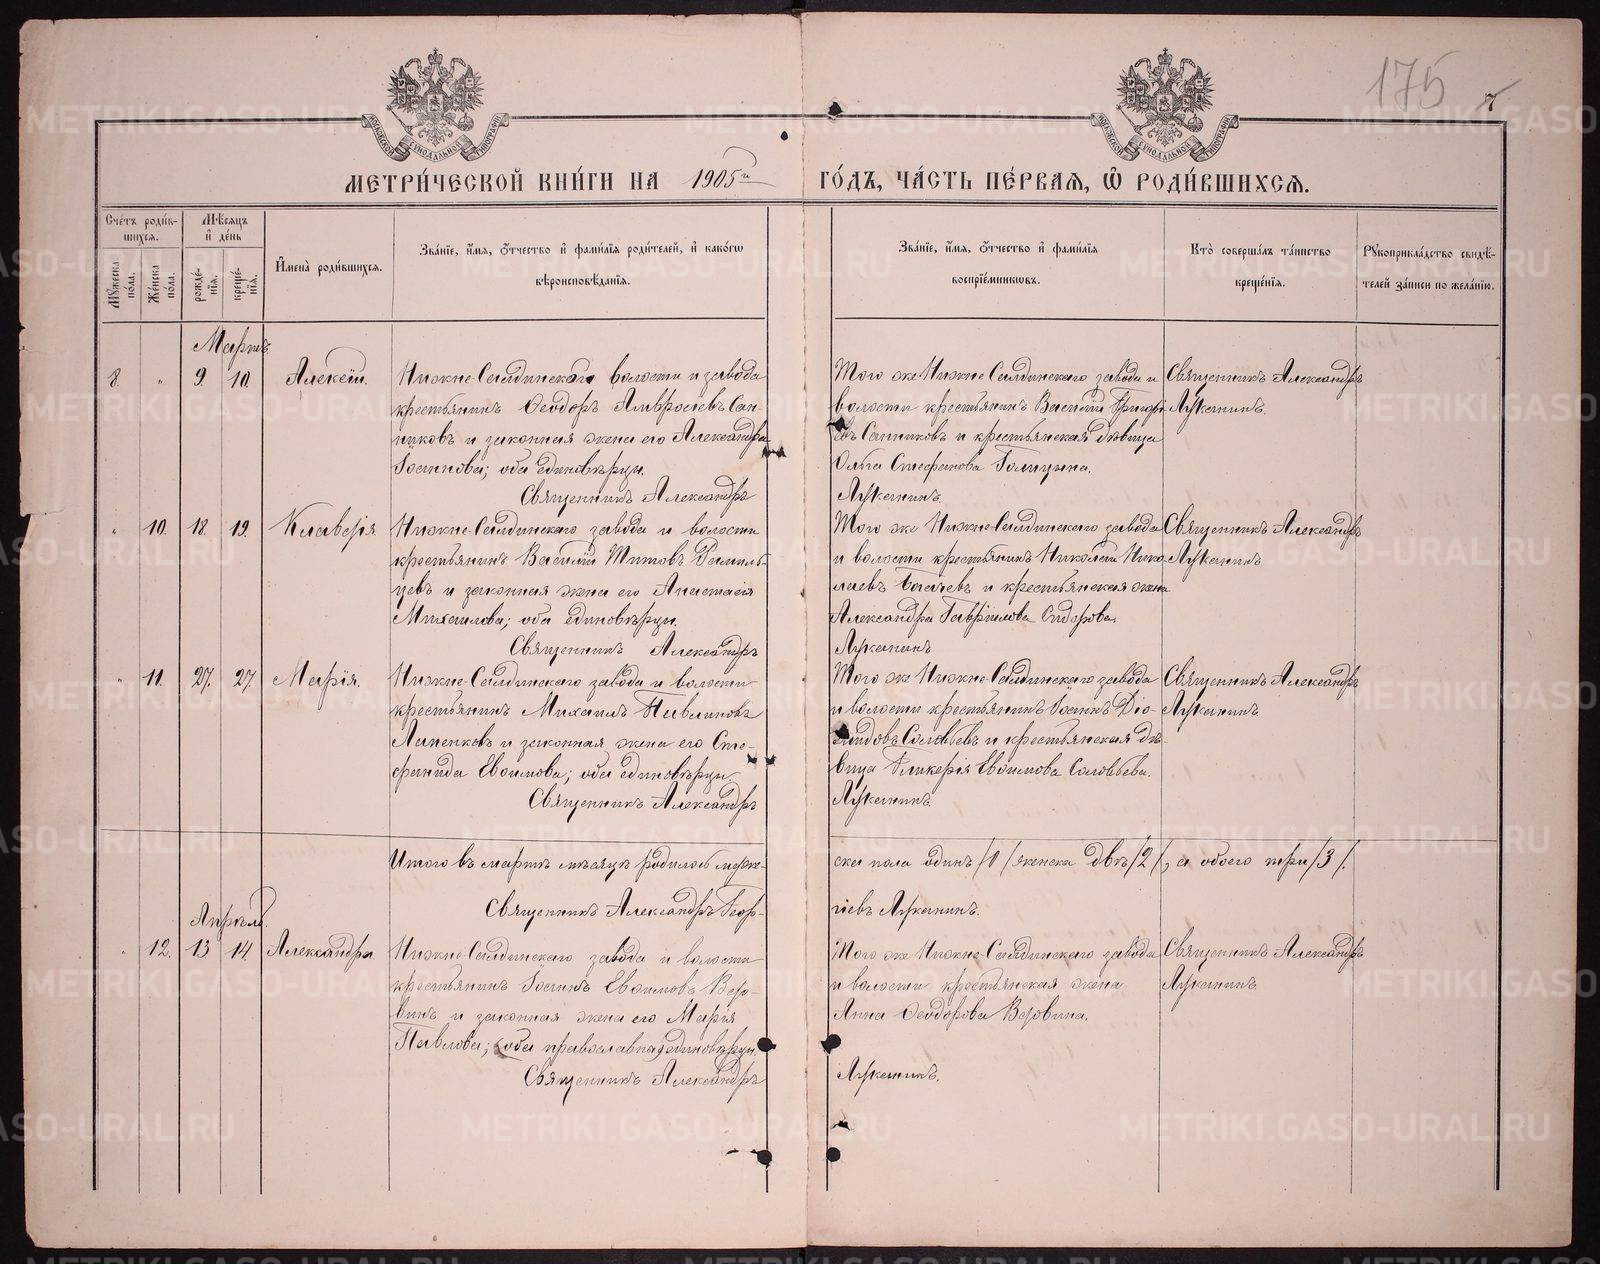 175
МЕТРИ́ЧЕСКОЙ КНИ́ГИ НА 1905й ГО́ДЪ, ЧА́СТЬ ПЕ́РВАЯ, Ѿ РОДИ́ВШИХСЯ.
Сче́тъ роди́в-
шихся.
Мѣ́сяцъ
и҆ де́нь
Мꙋ́жеска по́ла.
Же́нска по́ла.
рожде́-
нїя.
креще́-
нїя.
И҆мена̀ роди́вшихся.
Зва́нїе, и҆́мя, ѻ҆́тчество и҆ фами́лїя роди́телей, и҆ како́гѡ
вѣроисповѣ́данїя.
Зва́нїе, и҆́мя, ѻ҆́тчество и҆ фами́лїя
воспрїе́мникѡвъ.
Кто̀ соверша́лъ та́инство
креще́нїя.
Рꙋкоприкла́дство свидѣ́-
телей за́писи по жела́нїю.
Мартъ.
8. " 9. 10. Алексѣй.
Нижне-Салдинскаго волости и завода
крестьянинъ Ѳеодоръ Амвросіевъ Сан-
никовъ и законная жена его Александра
Іоаннова; оба единовѣрцы.
Священникъ Александръ
Того же Нижне Салдинскаго завода и
волости крестьянинъ Василій Григорі-
евъ Санниковъ и крестьянская дѣвица
Ольга Стефанова Голицына.
Лукканинъ.
Священникъ Александръ
" 10. 18. 19. Клавдія.
Нижне-Салдинскаго завода и волости
крестьянинъ Василій Титовъ
и законная жена его Анастасія
Михаилова; оба единовѣрцы.
Священникъ Александръ
Того же Нижне-Салдинскаго завода
и волости крестьянинъ Николай Нико-
лаевъ и крестьянская жена
Александра Гавріилова Сидорова.
Священникъ Александръ
" 11. 27. 27. Марія.
Нижне-Салдинскаго завода и волости
крестьянинъ Михаилъ Павлиновъ
и законная жена его Сте-
фанида Евѳимова; оба единовѣрцы.
Священникъ Александръ
Того же Нижне-Салдинскаго завода
и волости крестьянинъ Іоаннъ Діо-
мидовъ Соловьевъ и крестьянская дѣ-
вица Гликерія Евѳимова Соловьева.
Священникъ Александръ
Итого въ мартѣ мѣсяцѣ родилось муже-
ска пола одинъ /1/ женска двѣ /2/, а обоего три /3/.
Священникъ Александръ Геор-
гіевъ
Апрѣль.
" 12. 13 14 Александра
Нижне-Салдинскаго завода и волости
крестьянинъ Іоаннъ Евѳимовъ Веро-
винъ и законная жена его Марія
Павлова; оба православные единовѣрцы.
Священникъ Александръ
Того же Нижне-Салдинскаго завода
и волости крестьянская жена
Анна Ѳеодорова Веровина.
Священникъ Александръ
METRIKI.GASO-URAL.RU